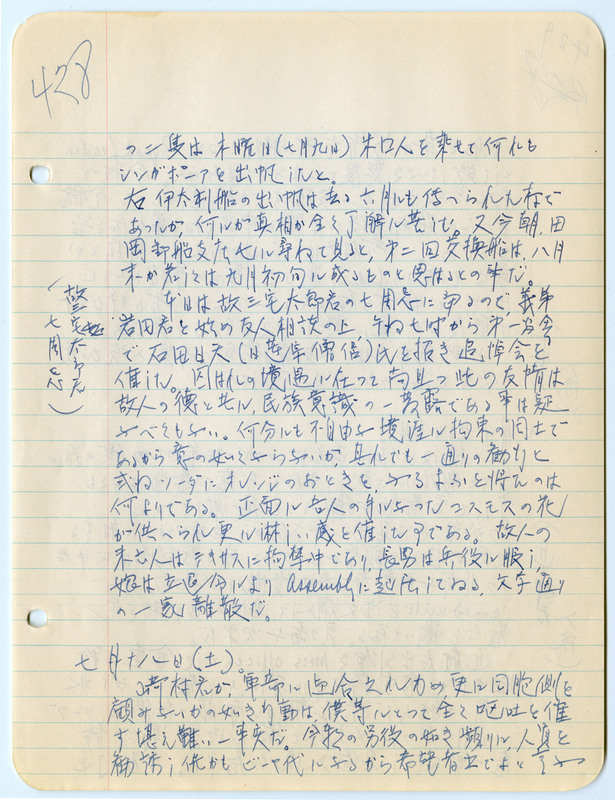 428
の二隻は 木曜日(七月九日) 米口人を乗せて何れも
シンガポーアを出帆したと。
右 伊太利船の出帆は去る六月にも伝へられた存で
あったが何れが真相か全く了解に苦しむ。又今朝、田
岡郵船支店長に尋ねて見ると、第二回交換船は、八月
末か若しくは九月初旬に成るものと思はるとの事だ。
本日は故三宅太郎君の七周忌に当るので、義弟
(故三宅太郎君
七周忌)
岩田君を始め友人相談の上、午后七時から第一食堂
で石田日天(日蓮宗僧侶)氏を招き追悼会を
催した。囚はれの境遇に在って尚且つ此の友情は
故人の徳と共に、民族意識の一発露である事は疑
ふべくもない。何分にも不自由な境涯に拘束の同士で
あるから意の如くならないが、其れでも一通りの勤行と
式后ソーダにオレンジのおときを
何よりである。正面に吾人の手になったコスモスの花
が供へられ更に淋しい感を催した事である。故人の
未亡人はテキサスに拘禁中であり、長男は兵役に服し、
娘は立退令により Assembly に起居してゐる、文字通り
の一家離散だ。
七月十八日(土)。
村君が、軍部に迎合之れ力め更に同胞側を
顧みないかの如き行動は、僕等にとって全く嘔吐を催
す堪え難い一事実だ。今朝の労役の如き頻りに、人員を
勧誘し、併かも ビール代になるから希望者出でよと